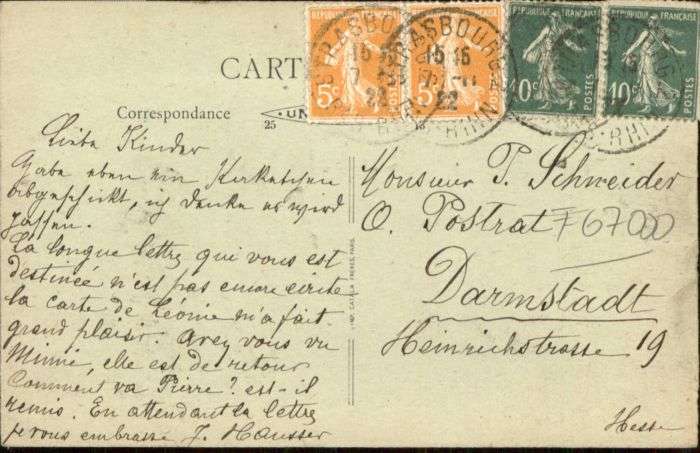 REPUBLIQUE FRANÇAISE
5c
REPUBLIQUE FRANÇAISE
10c
REPUBLIQUE FRANÇAISE
10c
POSTES
STRASBOURG
15
22
STRASBOURG
15
22
B-RHIN
CART
Correspondance
25
UN
Liebe Kinder
Habe eben ein
abgeschickt, ich denke es wird
passen.
La longue lettre qui vous est
destinée n'est pas encore écrite
la carte de Léonie m'a fait
grand plaisir. Avez vous vu
Mimie, elle est de retour
Comment va Pierre? est-il
remis. En attendant la lettre
je vous embrasse J. Hausser
IMP. CATALA FRÈRES, PARIS
Monsieur P. Schneider
O. Postrat F67000
Darmstadt
Heinrichstrasse 19
Hesse